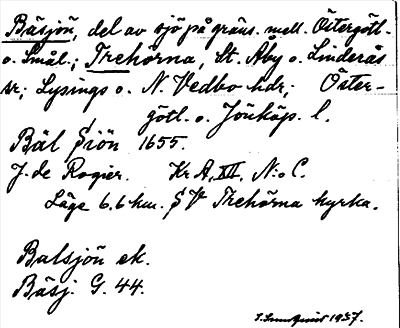 Bäsjön, del av sjö på gräns. mell. Östergötl.
o. Smål.; Trehörna, St. Aby o. Linderås
sr; Lysings o. N. Vedbo hdr; Öster-
götl. o. Jönköp. l.
Bäl Siön 1655.
J. de Rogier. Kr A, XII, N:o C.
Läge 6.6 km. SV Trehörna kyrka.
Balsjön ek.
Bäsj. G. 44.
1937.